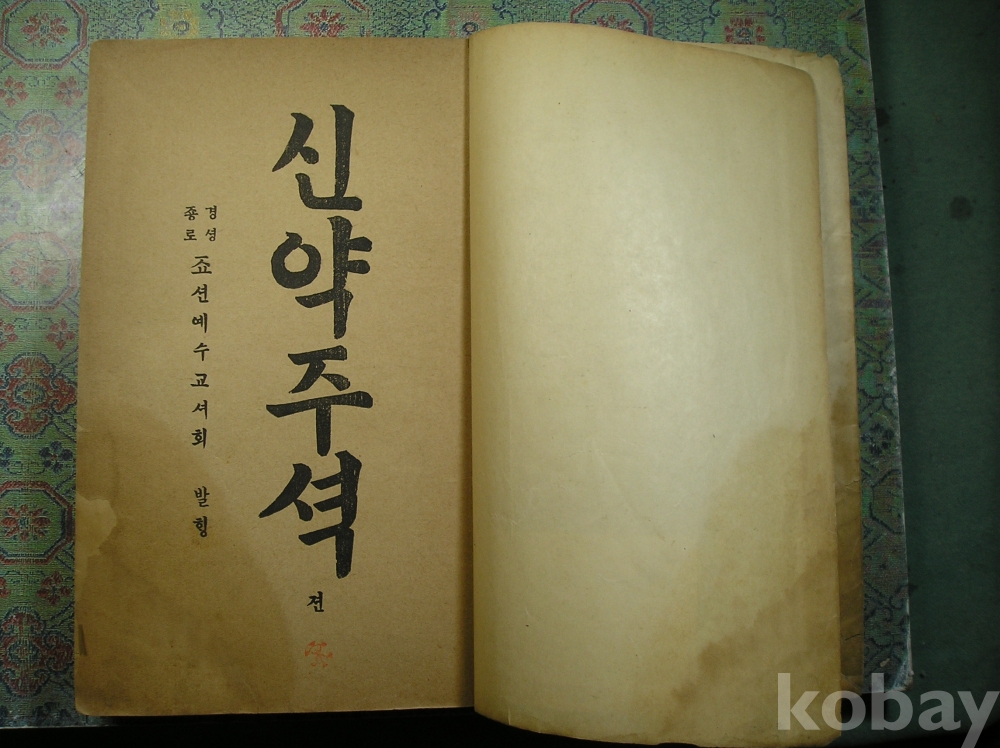 신약주셕
젼
경셩
죵로
죠션예수교셔회 발힝
kobay